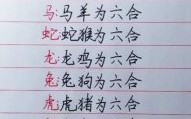 马:马羊为六合
蛇:蛇猴为六合
龙:龙鸡为六合
兔:兔狗为六合
虎:虎猪为六合